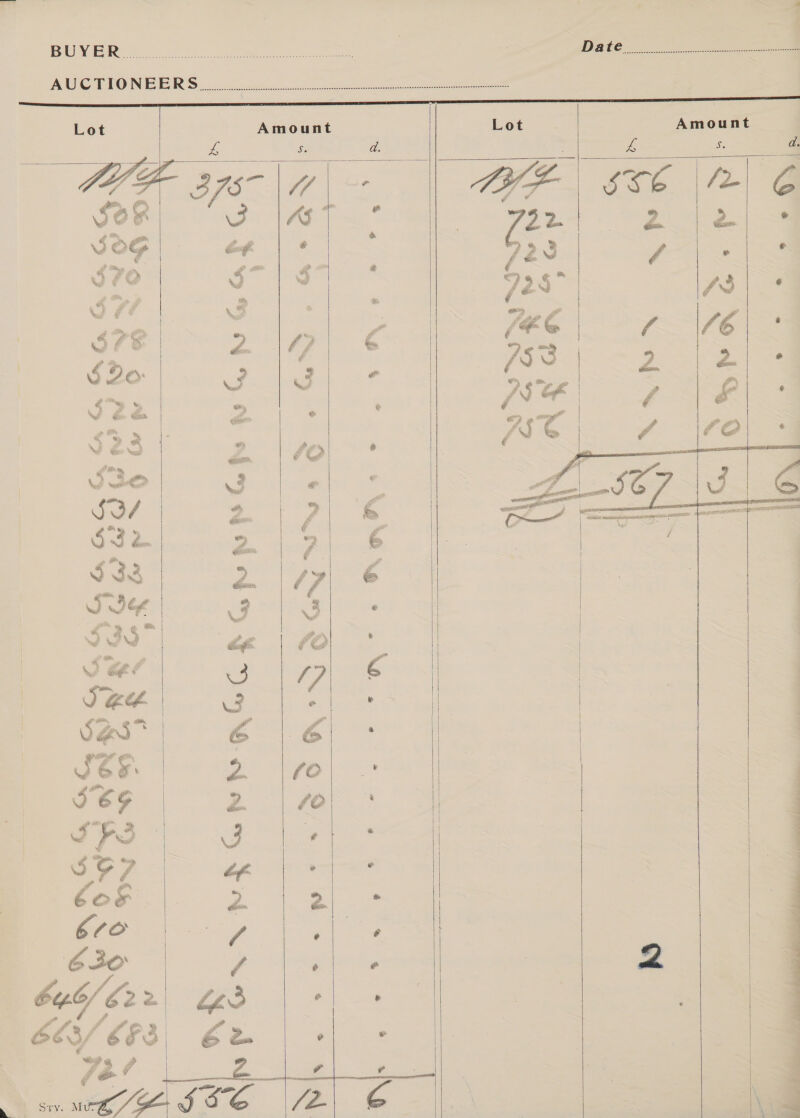 BUYER Date
AUCTIONEERS
Lot Amount Lot Amount
£ s. d. £ s. d.
B/F 375 11 •
508 3 15 •
509 4 • •
510 5 5 •
511 3 • •
518 2 17 6
520 3 3 •
522 2 • •
523 2 10 •
530 3 • •
531 2 7 6
532 2 7 6
533 2 17 6
534 3 3 •
535 4 10 •
541 3 17 6
544 3 • •
545 6 6 •
568 2 10 •
569 2 10 •
3 • •
597 4 • •
608 2 2 •
610 1 • •
630 1 • •
646/622 43 • •
663/683 62 • •
721 2 • •
C/F 556 12 6
B/F 556 12 6
722 2 2 •
723 1 • •
725 13 •
746 1 16 •
753 2 2 •
754 1 8 •
756 1 10 •
£ 567 3 6
2